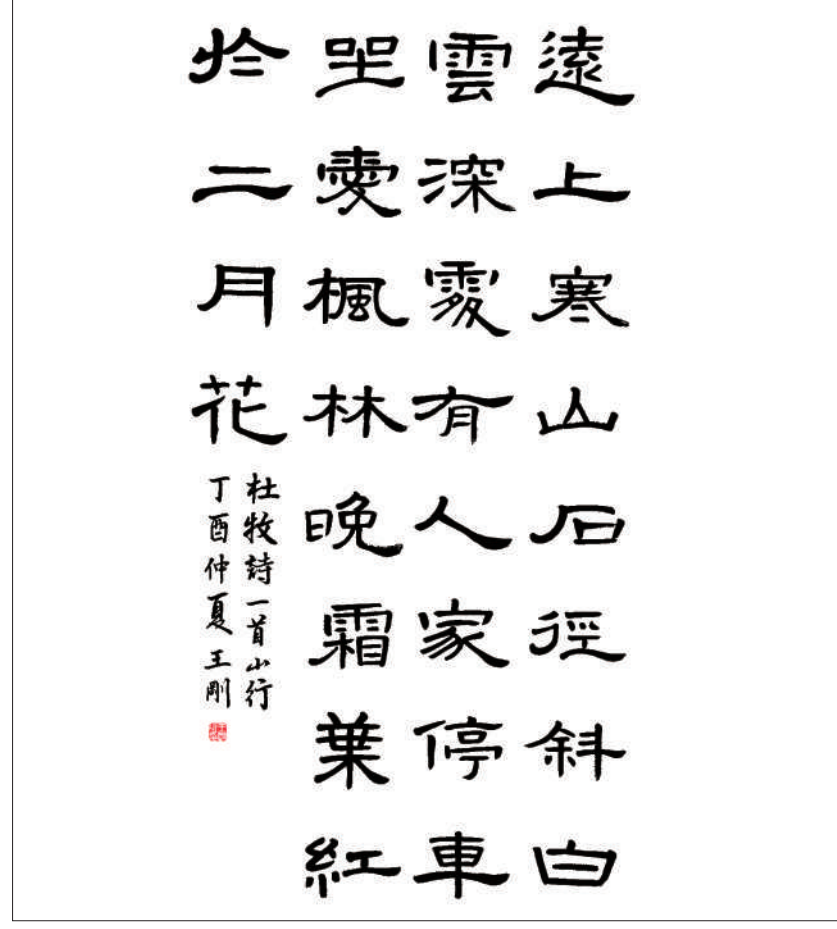 遠上寒山石徑斜白
雲深處有人家停車
坐愛楓林晚霜葉紅
於二月花
杜牧詩一首山行
丁酉仲夏王剛